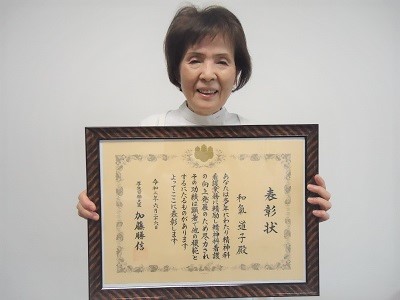 表彰状
和氣 道子殿
あなたは多年にわたり精神科
看護業務に精励し精神科看護
の向上発展のため尽力され
その功績は顕著で他の模範と
するにたるものがあります
よってここに表彰します
令和三年六月二十九日
厚生労働大臣 加藤勝信